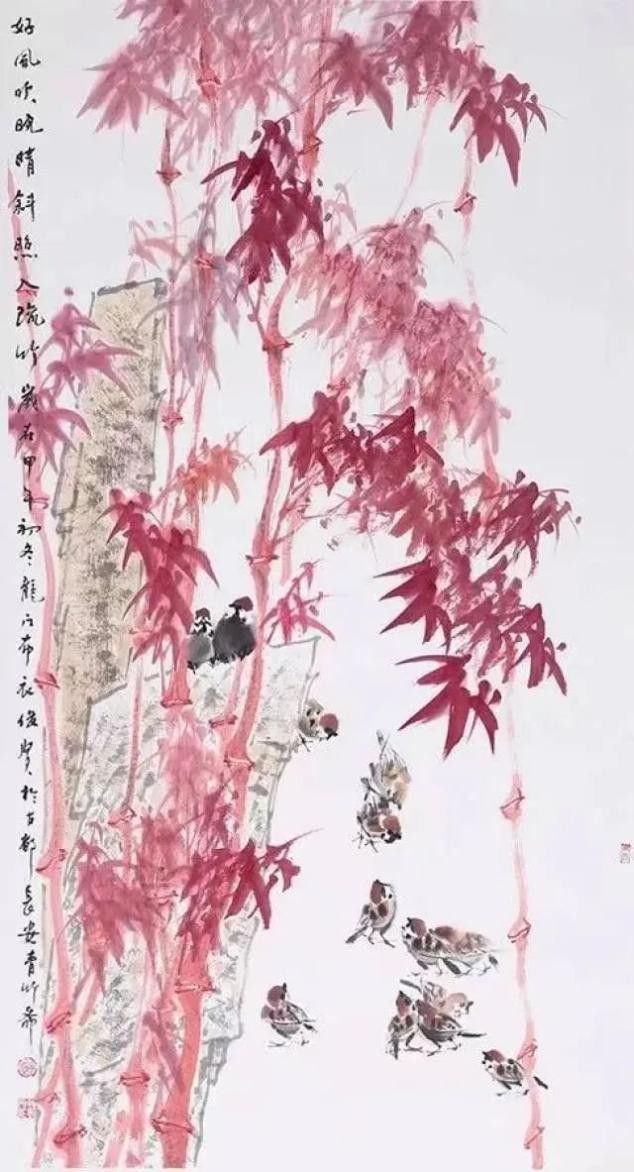 好风吹晚晴斜照入疏竹岁在甲午初冬龙门布衣俊贤于古都长安青竹斋